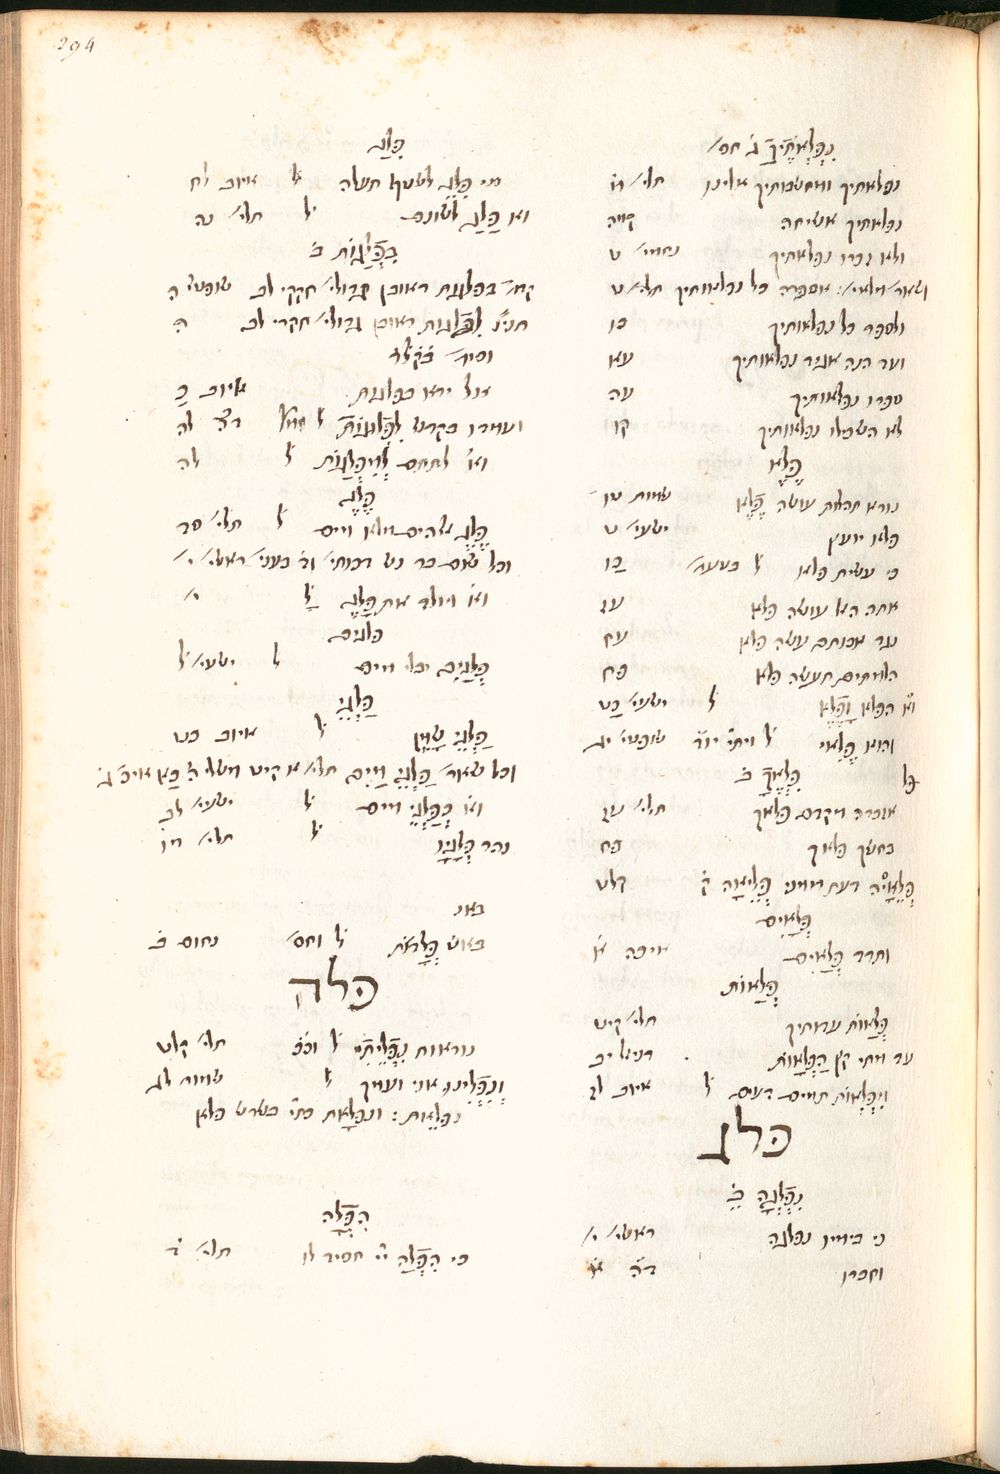 294
נִפְלְאֹתֶיךָ ג̇ חס׳
נפלאתיך ומחשבותיך אלינו תלי׳ מ
נפלאתיך אשיחה קיה
ולא זכרו נפלאתיך נחמי׳ ט
ושאר מלאי׳: אספרה כל נפלאותיך תלי׳ ט
ולספר כל נפלאותיך כו
ועד הנה אגיד נפלאותיך עא
ספרו נפלאותיך עה
לא השכילו נפלאותיך קו
פֶּלֶא
נורא תהלת עושה פֶלֶא שמות טו
פלא יועץ ישעי׳ ט
כי עשית פלא ל̇ כה
אתה האל עושה פלא עז
נגד אבותם עשה פלא עח
הלמתים תעשה פלא פח
הפלא וָפֶלֶא ל̇ ישעי׳ כט
והוא פֶלִאי ל̇ שופטי׳ יג
פִּלְאֲךָ ב̇
אזכרה מקדם פלאך תלי׳ עז
בחשך פלאך פח
פְּלִאיָּה דעת ממני פְּלִיאָה ק̇ קלט
פְּלָאִים
ותרד פְּלָאִים איכה א
פְּלָאוֹת
פְּלָאוֹת עדותיך תלי׳ קיט
עד מתי קץ הַפְּלָאוֹת דניאל יב
מִפְלְאוֹת תמים דעים ל̇ איוב לז
פלג
נִפְלְגָה ב̇
כי בימיו נפלגה ראשי׳ י׳
וחברו ד״ה א̇
פִּלַּג
מי פִלַּג לשטף תעלה ל̇ איוב לח
פַּלַּג לְשׁוֹנם ל̇ תלי׳ נה
בִּפְלַגּוֹת ב̇
בפלגות ראובן גדולי׳ חקקי לב שופטי׳ ה
לִפְלַגּוֹת ראובן גדולי׳ חקרי לב ה
אל ירא בפלגות איוב כ
ועמדו בקדש לִפְלֻגּוֹת ל̇ לה
לתתם לְמִפְלַגּוֹת ל̇ לה
פֶּלֶג
פֶּלֶג אלהים מלא מים ל̇ תלי׳ סה
ויולד את פֶּלֶג ל̇ י׳
פלגים
פְּלָגִים יבלי מים ל̇ ישעי׳ ל
פַּלְגֵי
פַּלְגֵי שָׁמֶן ל̇ איוב כט
וכל שאר׳ פַּלְגֵי מַיִם תלי׳ א קיט משלי ה̇ כא איכ׳ ג̇
כְּפַלְגֵי מים ל̇ ישעי׳ לב
נהר פְּלָגָיו ל̇ תלי׳ מו
באש פְּלָדֹת ל̇ וחס׳ נחום ב̇
פלה
נוראות נִפְלֵיתִי ל̇ תלי׳ קלט
וְנִפְלֵינוּ אני ועמך ל̇ שמות לג
נפלאות: ונפלאת בשרש פלא
הִפְלָה
כי הִפְלָה יי חסיד לו תלי׳ ד̇